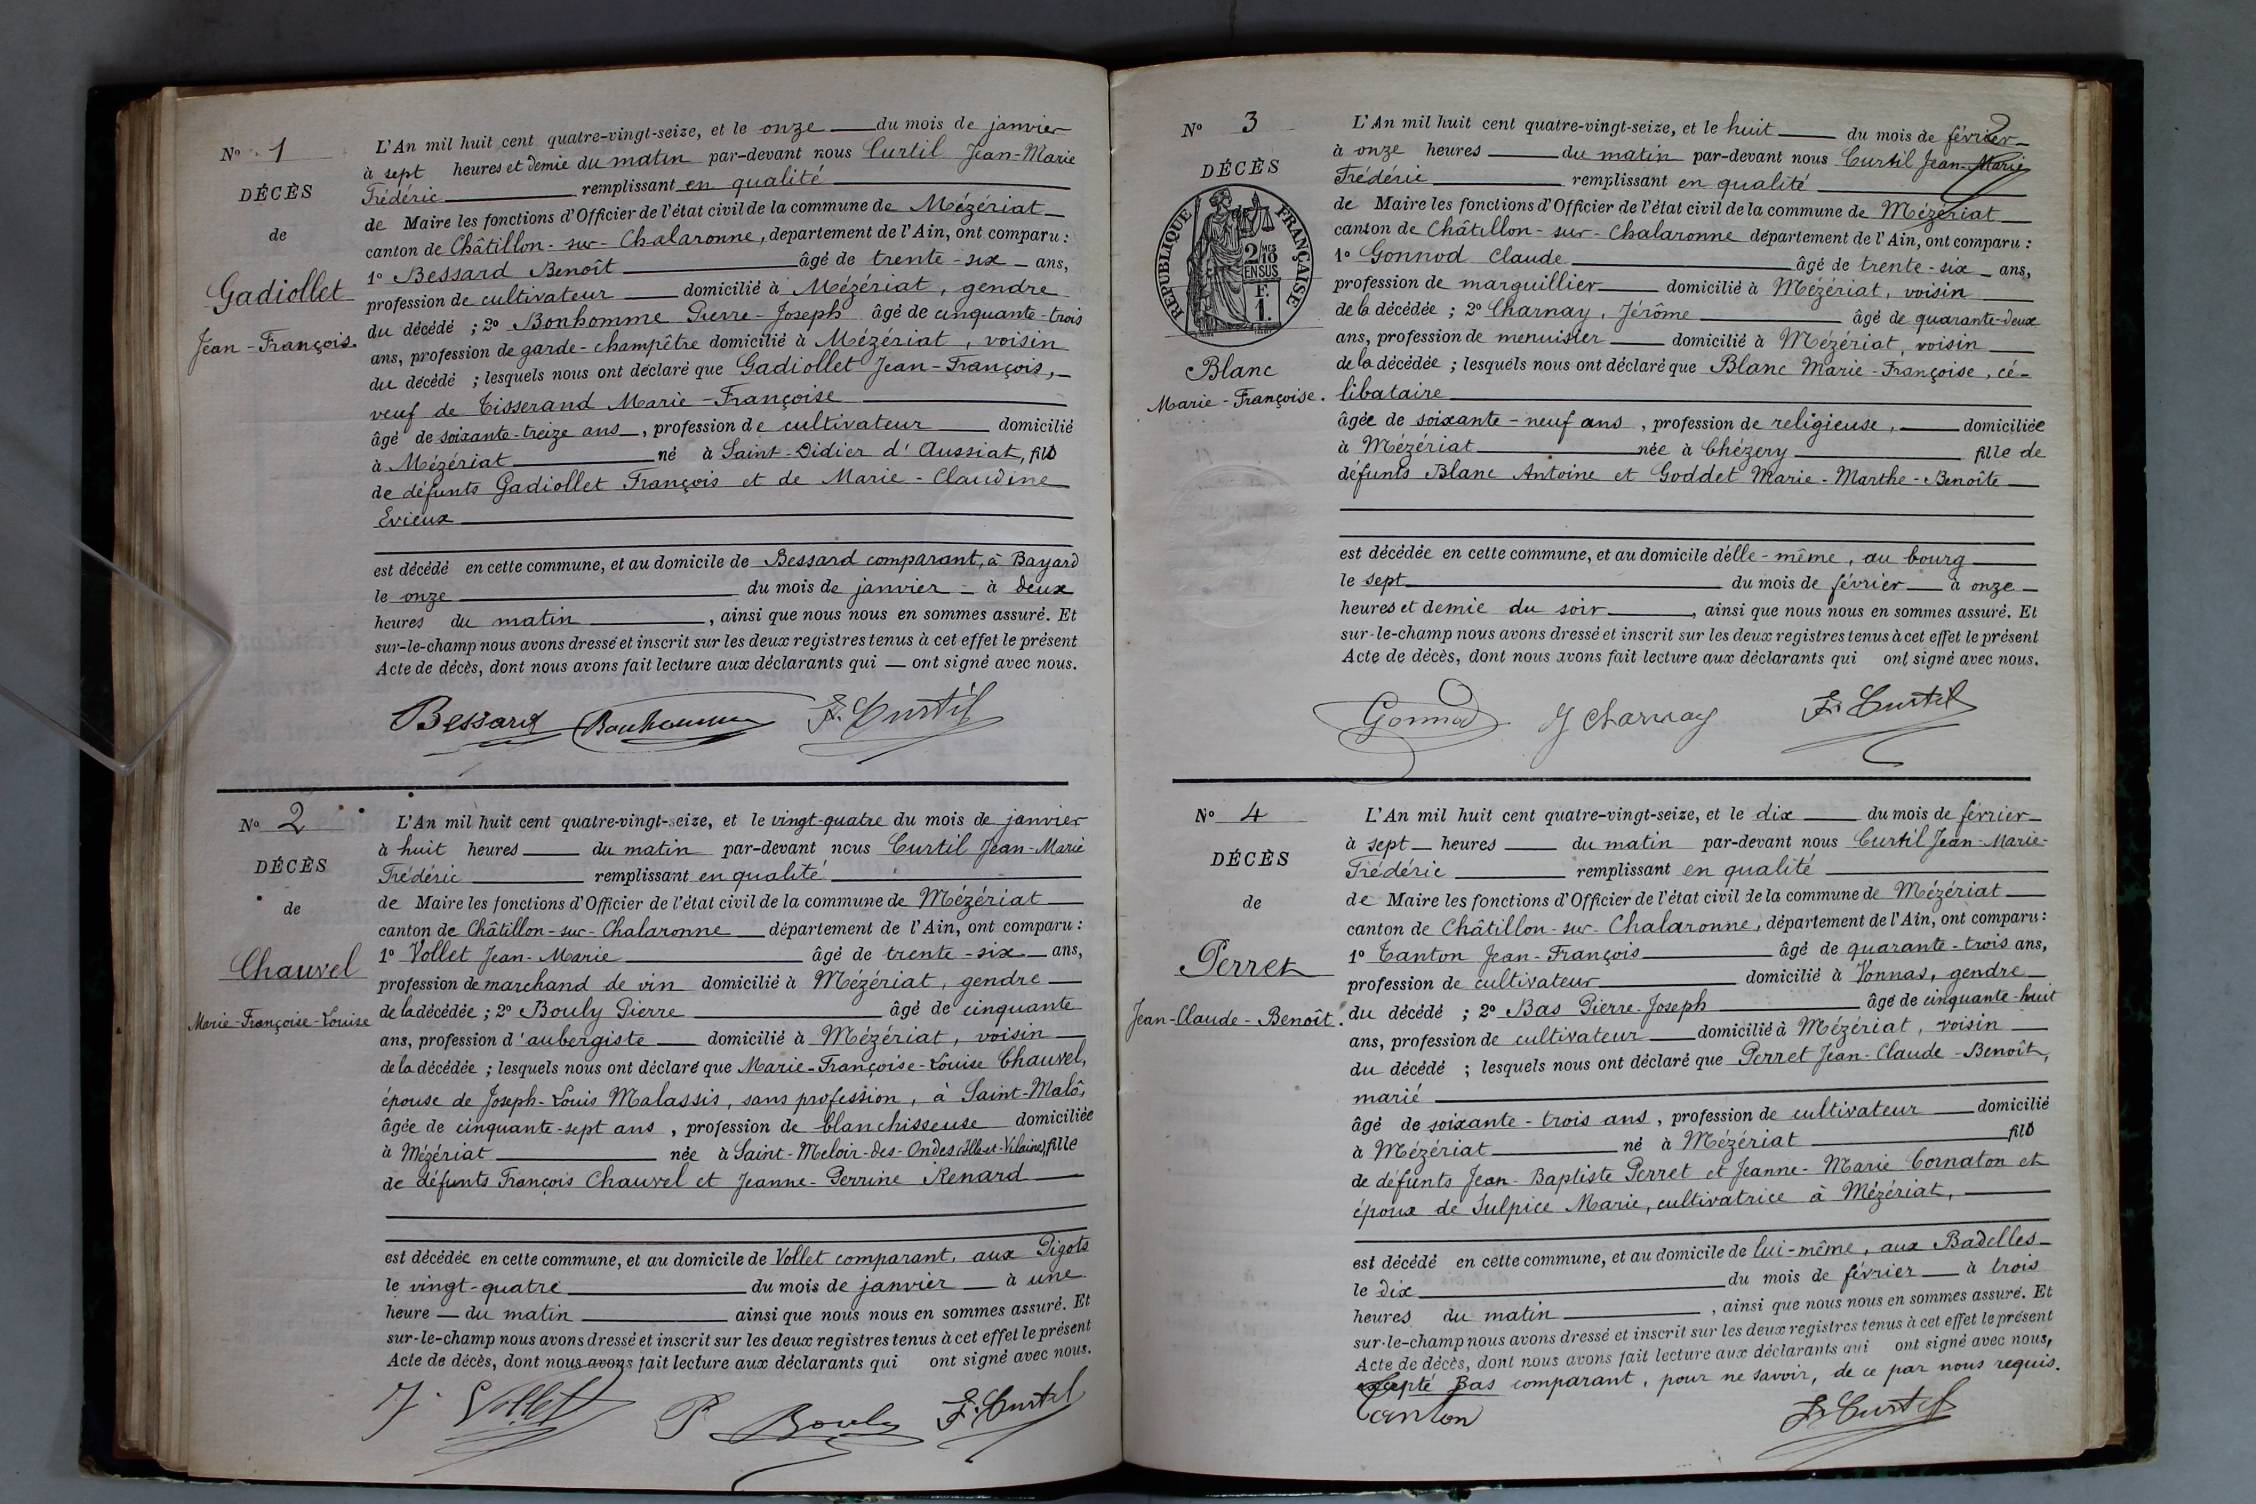 N° 1
DÉCÈS
de
Gadiollet
Jean-François.
L'An mil huit cent quatre-vingt-seize, et le onze du mois de janvier
à sept heures et demie du matin par-devant nous Curtil Jean-Marie
Frédéric remplissant en qualité
de Maire les fonctions d'Officier de l'état civil de la commune de Mézériat
canton de Châtillon-sur-Chalaronne, département de l'Ain, ont comparu :
1° Bessard Benoît âgé de trente-six ans,
profession de cultivateur domicilié à Mézériat, gendre
du décédé ; 2° Bonhomme Pierre-Joseph âgé de cinquante-trois
ans, profession de garde-champêtre domicilié à Mézériat, voisin
du décédé ; lesquels nous ont déclaré que Gadiollet Jean-François,
veuf de Tisserand Marie-Françoise
âgé de soixante-treize ans, profession de cultivateur domicilié
à Mézériat né à Saint-Didier d'Aussiat, fils
de défunts Gadiollet François et de Marie-Claudine
Evieux
est décédé en cette commune, et au domicile de Bessard comparant, à Bayard
le onze du mois de janvier à deux
heures du matin, ainsi que nous nous en sommes assuré. Et
sur-le-champ nous avons dressé et inscrit sur les deux registres tenus à cet effet le présent
Acte de décès, dont nous avons fait lecture aux déclarants qui ont signé avec nous.
Bessard Bonhomme F. Curtil
N° 2
DÉCÈS
de
Chauvel
Marie-Françoise-Louise
L'An mil huit cent quatre-vingt-seize, et le vingt-quatre du mois de janvier
à huit heures du matin par-devant nous Curtil Jean-Marie
Frédéric remplissant en qualité
de Maire les fonctions d'Officier de l'état civil de la commune de Mézériat
canton de Châtillon-sur-Chalaronne département de l'Ain, ont comparu :
1° Vollet Jean-Marie âgé de trente-six ans,
profession de marchand de vin domicilié à Mézériat, gendre
de la décédée ; 2° Bouly Pierre âgé de cinquante
ans, profession d'aubergiste domicilié à Mézériat, voisin
de la décédée ; lesquels nous ont déclaré que Marie-Françoise-Louise Chauvel,
épouse de Joseph-Louis Malassis, sans profession, à Saint-Malô,
âgée de cinquante-sept ans, profession de blanchisseuse domiciliée
à Mézériat née à Saint-Meloir-des-Ondes (Ille-et-Vilaine), fille
de défunts François Chauvel et Jeanne-Perrine Renard
est décédée en cette commune, et au domicile de Vollet comparant, aux Pigots
le vingt-quatre du mois de janvier à une
heure du matin ainsi que nous nous en sommes assuré. Et
sur-le-champ nous avons dressé et inscrit sur les deux registres tenus à cet effet le présent
Acte de décès, dont nous avons fait lecture aux déclarants qui ont signé avec nous.
J. Vollet P Bouly F. Curtil
2
N° 3
DÉCÈS
RÉPUBLIQUE FRANÇAISE
2/10
EN SUS
F.
1.
Blanc
Marie-Françoise.
L'An mil huit cent quatre-vingt-seize, et le huit du mois de février
à onze heures du matin par-devant nous Curtil Jean-Marie
Frédéric remplissant en qualité
de Maire les fonctions d'Officier de l'état civil de la commune de Mézériat
canton de Châtillon-sur-Chalaronne département de l'Ain, ont comparu :
1° Gonnod Claude âgé de trente-six ans,
profession de marguillier domicilié à Mézériat, voisin
de la décédée ; 2° Charnay, Jérôme âgé de quarante-deux
ans, profession de menuisier domicilié à Mézériat, voisin
de la décédée ; lesquels nous ont déclaré que Blanc Marie-Françoise, cé-
libataire
âgée de soixante-neuf ans, profession de religieuse, domiciliée
à Mézériat née à Chézery fille de
défunts Blanc Antoine et Goddet Marie-Marthe-Benoîte
est décédée en cette commune, et au domicile d'elle-même, au bourg
le sept du mois de février à onze
heures et demie du soir, ainsi que nous nous en sommes assuré. Et
sur-le-champ nous avons dressé et inscrit sur les deux registres tenus à cet effet le présent
Acte de décès, dont nous avons fait lecture aux déclarants qui ont signé avec nous.
Gonnod J Charnay F. Curtil
N° 4
DÉCÈS
de
Perret
Jean-Claude-Benoît.
L'An mil huit cent quatre-vingt-seize, et le dix du mois de février
à sept heures du matin par-devant nous Curtil Jean-Marie-
Frédéric remplissant en qualité
de Maire les fonctions d'Officier de l'état civil de la commune de Mézériat
canton de Châtillon-sur-Chalaronne, département de l'Ain, ont comparu :
1° Tanton Jean-François âgé de quarante-trois ans,
profession de cultivateur domicilié à Vonnas, gendre
du décédé ; 2° Bas Pierre-Joseph âgé de cinquante-huit
ans, profession de cultivateur domicilié à Mézériat, voisin
du décédé ; lesquels nous ont déclaré que Perret Jean-Claude-Benoît,
marié
âgé de soixante-trois ans, profession de cultivateur domicilié
à Mézériat né à Mézériat fils
de défunts Jean-Baptiste Perret et Jeanne-Marie Cornaton et
époux de Sulpice Marie, cultivatrice à Mézériat,
est décédé en cette commune, et au domicile de lui-même, aux Badelles
le dix du mois de février à trois
heures du matin, ainsi que nous nous en sommes assuré. Et
sur-le-champ nous avons dressé et inscrit sur les deux registres tenus à cet effet le présent
Acte de décès, dont nous avons fait lecture aux déclarants qui ont signé avec nous,
excepté Bas comparant, pour ne savoir, de ce par nous requis.
Tanton F. Curtil